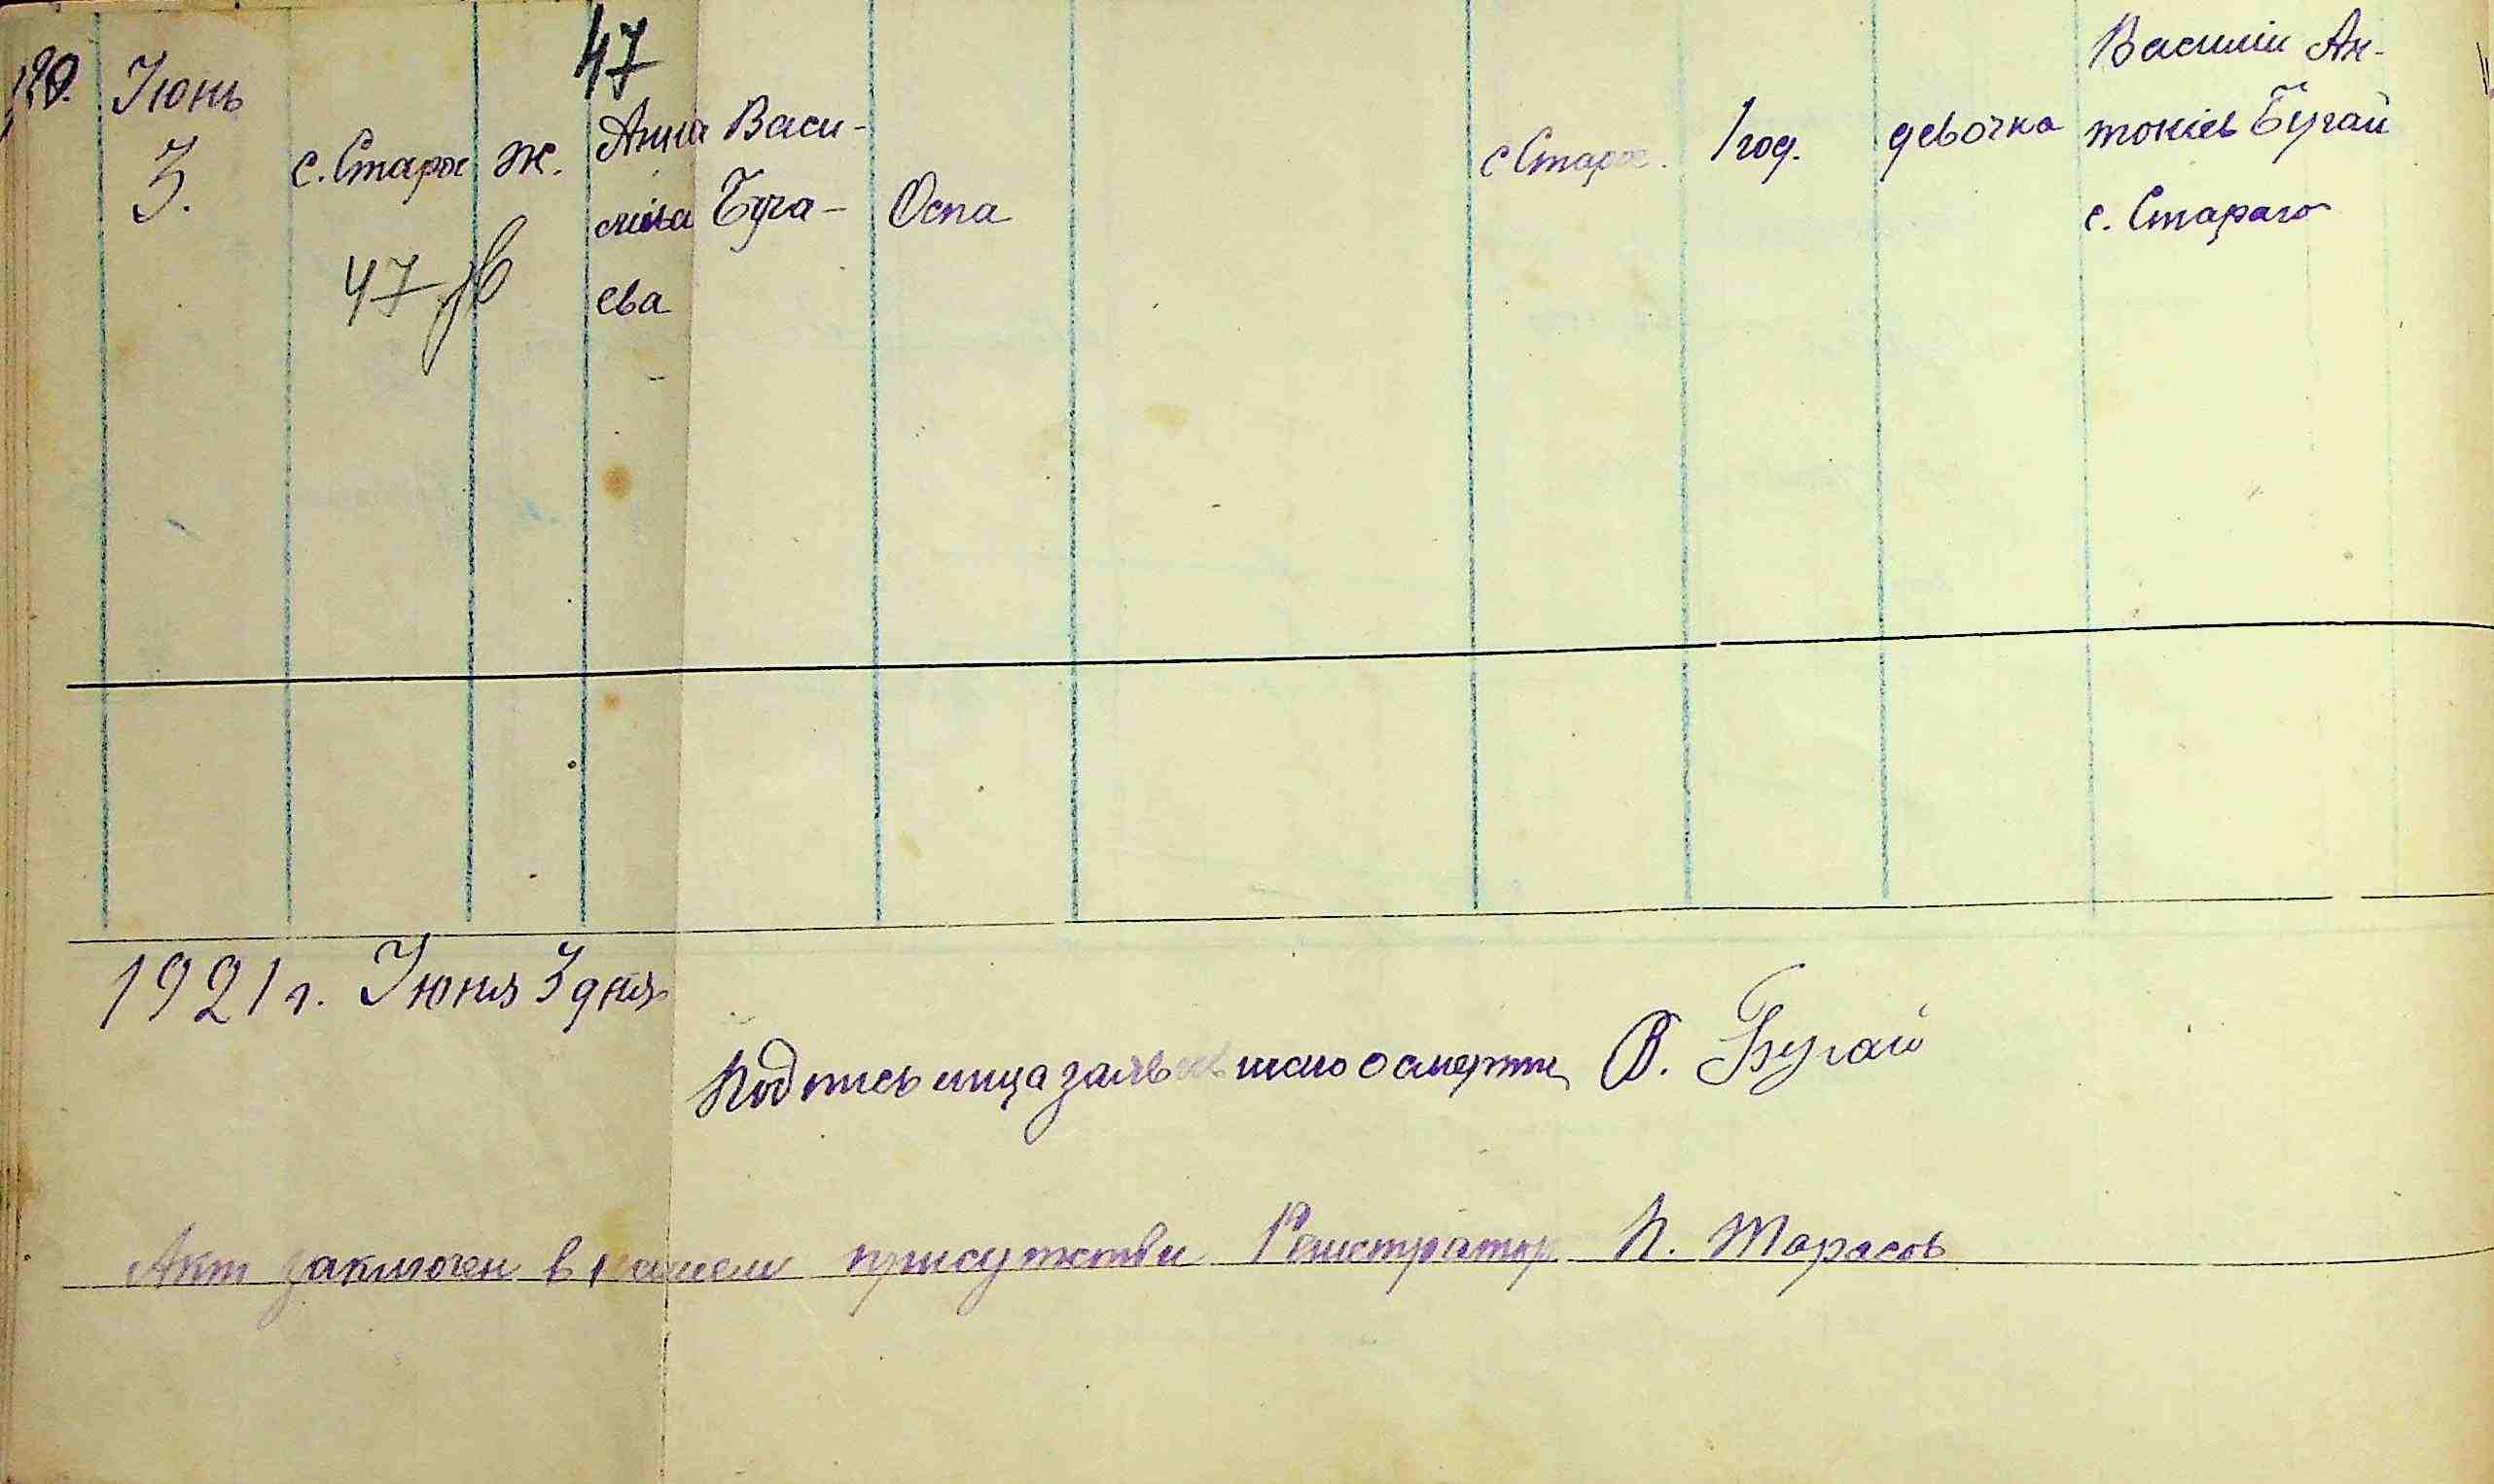 47
Июнь
3.
с. Старое
ж.
Анна Васи-
лиева Буга-
ева
Оспа
с Старое.
1 год.
девочка
Василий Ан-
тониев Бугай
с. Стараго
47
1921 г. Июня 3 дня
Подпись лица заявившаго о смерти В. Бугай
Акт заключен в моем присутствии Регистратор П. Тарасов